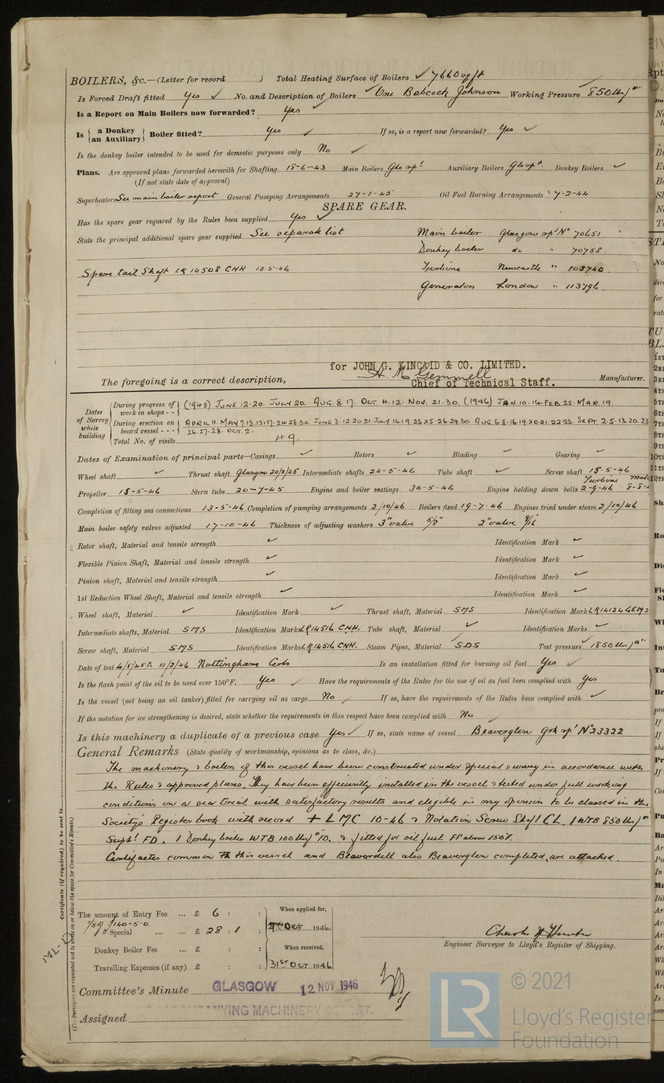 BOILERS, &c.—(Letter for record ) Total Heating Surface of Boilers ✓ 7660 sq ft
Is Forced Draft fitted Yes ✓ No. and Description of Boilers ✓ One Babcock Johnson Working Pressure 850 lb/□"
Is a Report on Main Boilers now forwarded? Yes ✓
Is { a Donkey / an Auxiliary } Boiler fitted? Yes ✓ If so, is a report now forwarded? Yes ✓
Is the donkey boiler intended to be used for domestic purposes only No ✓
Plans. Are approved plans forwarded herewith for Shafting 18-6-43 Main Boilers Gls rpt Auxiliary Boilers Gls rpt. Donkey Boilers ✓
(If not state date of approval)
Superheaters See main boiler report General Pumping Arrangements 27-1-45 Oil Fuel Burning Arrangements 7-2-44
SPARE GEAR.
Has the spare gear required by the Rules been supplied Yes ✓
State the principal additional spare gear supplied See separate list Main boiler Glasgow rpt No 70651
Donkey boiler do " 70758
Spare tail Shaft LR 14508 CNH 13-5-46 Turbine Newcastle " 103740
Generators London " 113796
for JOHN G. KINCAID & CO. LIMITED.
The foregoing is a correct description, Chief of Technical Staff. Manufacturer.
Dates of Survey while building
During progress of work in shops - - (1945) JUNE 12.20. JULY 20. AUG. 8.17. OCT. 4.12. NOV. 21.30. (1946) JAN. 10.16. FEB. 25. MAR. 19.
During erection on board vessel - - - APRIL 11. MAY 9.13.15.17.24.28.30 JUNE 3.12.20.21 JULY 16.19.23.25.26.29.30 AUG. 6.8.16.19.20.21.22.23. SEPT 2.5.13.20.23
26.27.28. OCT. 2.
Total No. of visits 49.
Dates of Examination of principal parts—Casings ✓ Rotors ✓ Blading ✓ Gearing ✓
Wheel shaft ✓ Thrust shaft Glasgow 20/3/45 Intermediate shafts 24-5-46 Tube shaft ✓ Screw shaft 15-5-46
Propeller 15-5-46 Stern tube 20-7-45 Engine and boiler seatings 30-5-46 Engine holding down bolts Turbine 2-9-46
Completion of fitting sea connections 13-5-46 Completion of pumping arrangements 2/10/46 Boilers fixed 19-7-46 Engines tried under steam 2/10/46
Main boiler safety valves adjusted 17-10-46 Thickness of adjusting washers 3" valve 2" valve
Rotor shaft, Material and tensile strength ✓ Identification Mark ✓
Flexible Pinion Shaft, Material and tensile strength ✓ Identification Mark ✓
Pinion shaft, Material and tensile strength ✓ Identification Mark ✓
1st Reduction Wheel Shaft, Material and tensile strength ✓ Identification Mark ✓
Wheel shaft, Material ✓ Identification Mark ✓ Thrust shaft, Material SMS Identification Mark LR14124 GEM
Intermediate shafts, Material SMS Identification Marks LR14516 CNH. Tube shaft, Material ✓ Identification Marks ✓
Screw shaft, Material SMS Identification Marks LR14516 CNH. Steam Pipes, Material SDS Test pressure 1850 lb/□"
Date of test 4/5/45 11/2/46 Nottingham Is an installation fitted for burning oil fuel Yes ✓
Is the flash point of the oil to be used over 150°F. Yes ✓ Have the requirements of the Rules for the use of oil as fuel been complied with Yes
Is the vessel (not being an oil tanker) fitted for carrying oil as cargo No ✓ If so, have the requirements of the Rules been complied with ✓
If the notation for ice strengthening is desired, state whether the requirements in this respect have been complied with No ✓
Is this machinery a duplicate of a previous case Yes ✓ If so, state name of vessel Beaverglen Grk rpt No 23322
General Remarks (State quality of workmanship, opinions as to class, &c.)
The machinery & boilers of this vessel have been constructed under special survey in accordance with
the Rules & approved plans. They have been efficiently installed in the vessel & tested under full working
conditions on a sea trial with satisfactory results and eligible in my opinion to be classed in the
Society's Register book with record + LMC 10-46 & Notation Screw Shaft CL. 1 WTB 850 lb/□"
Supht FD. 1 Donkey boiler WTB 100 lb/□". & fitted for oil fuel FP above 150°F.
Certificates common to this vessel and Beaverdell also Beaverglen completed, are attached.
Certificate (if required) to be sent to
(The Surveyors are requested not to write on or below the space for Committee's Minute.)
The amount of Entry Fee ... £ 6 : : When applied for,
4/5ths £140-5-0
Special ... £ 28 : 1 : OCT 1946
Donkey Boiler Fee ... £ : : When received,
Travelling Expenses (if any) £ : : 31st OCT 1946
Engineer Surveyor to Lloyd's Register of Shipping.
Committee's Minute GLASGOW 12 NOV 1946
Assigned
© 2021
LR
Lloyd's Register
Foundation